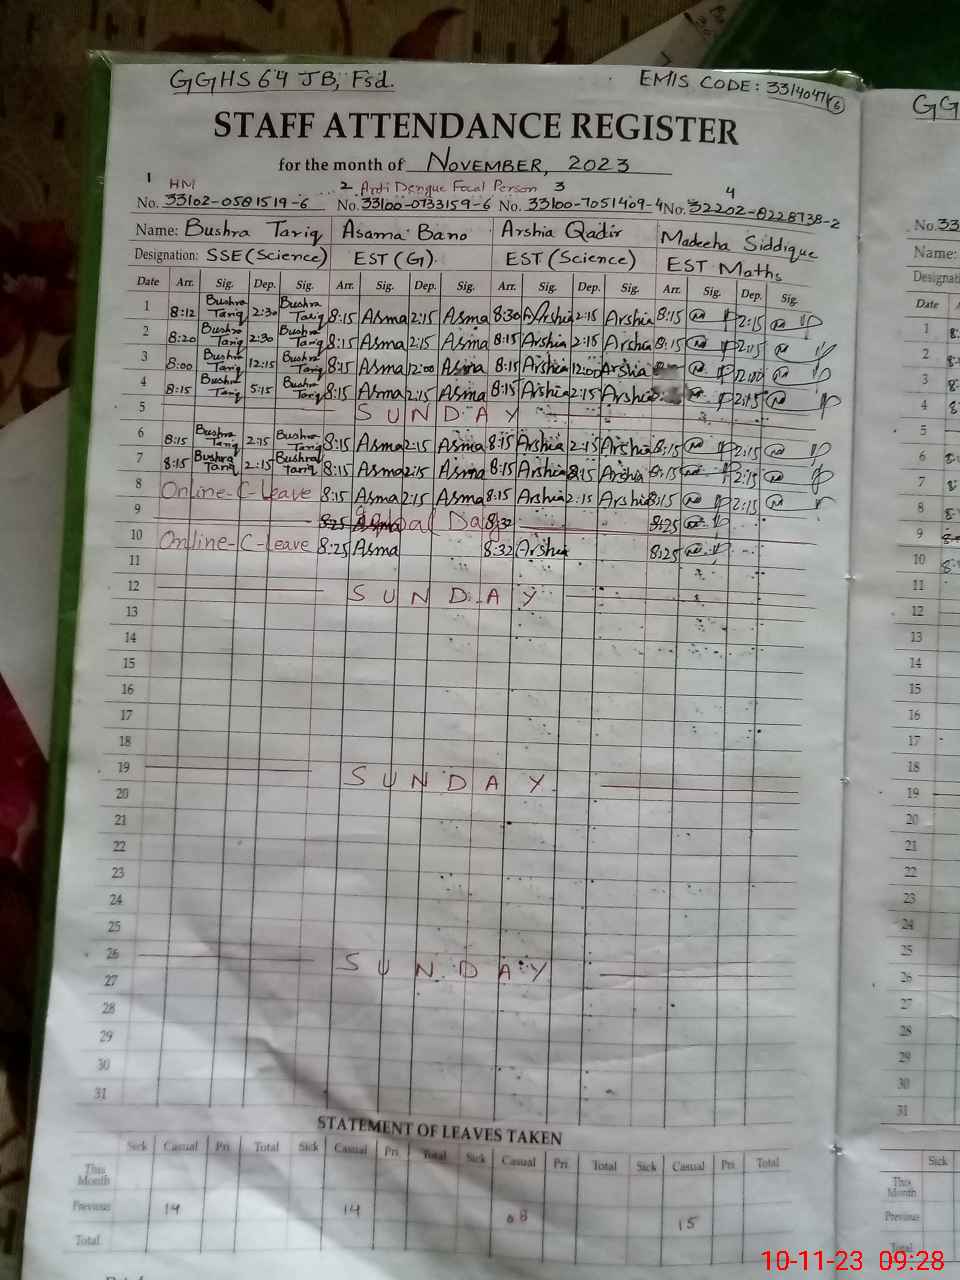 GGHS 64 JB, Fsd. EMIS CODE: 33140471 6
STAFF ATTENDANCE REGISTER
for the month of NOVEMBER, 2023
1 HM 2 Anti Dengue Focal Person 3 4
No. 33102-0581519-6 No. 33100-0733159-6 No. 33100-7051409-4 No. 32202-8228738-2
Name: Bushra Tariq Asama Bano Arshia Qadir Madeeha Siddique
Designation: SSE (Science) EST (G). EST (Science) EST Maths
Date Arr. Sig. Dep. Sig. Arr. Sig. Dep. Sig. Arr. Sig. Dep. Sig. Arr. Sig. Dep. Sig.
1 8:12 Bushra Tariq 2:30 Bushra Tariq 8:15 Asma 2:15 Asma 8:30 Arshia 2:15 Arshia 8:15 2:15
2 8:20 Bushra Tariq 2:30 Bushra Tariq 8:15 Asma 2:15 Asma 8:15 Arshia 2:15 Arshia 8:15 2:15
3 8:00 Bushra Tariq 12:15 Bushra Tariq 8:15 Asma 12:00 Asma 8:15 Arshia 12:00 Arshia 12:00
4 8:15 Bushra Tariq 5:15 Bushra Tariq 8:15 Asma 2:15 Asma 8:15 Arshia 2:15 Arshia 2:15
5 SUNDAY
6 8:15 Bushra Tariq 2:15 Bushra Tariq 8:15 Asma 2:15 Asma 8:15 Arshia 2:15 Arshia 8:15 2:15
7 8:15 Bushra Tariq 2:15 Bushra Tariq 8:15 Asma 2:15 Asma 8:15 Arshia 2:15 Arshia 8:15 2:15
8 Online-C-Leave 8:15 Asma 2:15 Asma 8:15 Arshia 2:15 Arshia 8:15 2:15
9 8:25 Iqbal Day 8:32 8:25
10 Online-C-Leave 8:25 Asma 8:32 Arshia 8:25
11
12 SUNDAY
13
14
15
16
17
18
19 SUNDAY
20
21
22
23
24
25
26 SUNDAY
27
28
29
30
31
STATEMENT OF LEAVES TAKEN
Sick Casual Pri. Total Sick Casual Pri. Total Sick Casual Pri. Total Sick Casual Pri. Total
This Month
Previous 14 14 08 15
Total
GG
No. 33
Name:
Designati
Date
1 8:
2 8:
3 8:
4 8:
5
6
7
8
9
10
11
12
13
14
15
16
17
18
19
20
21
22
23
24
25
26
27
28
29
30
31
Sick
This Month
Previous
Total
10-11-23 09:28